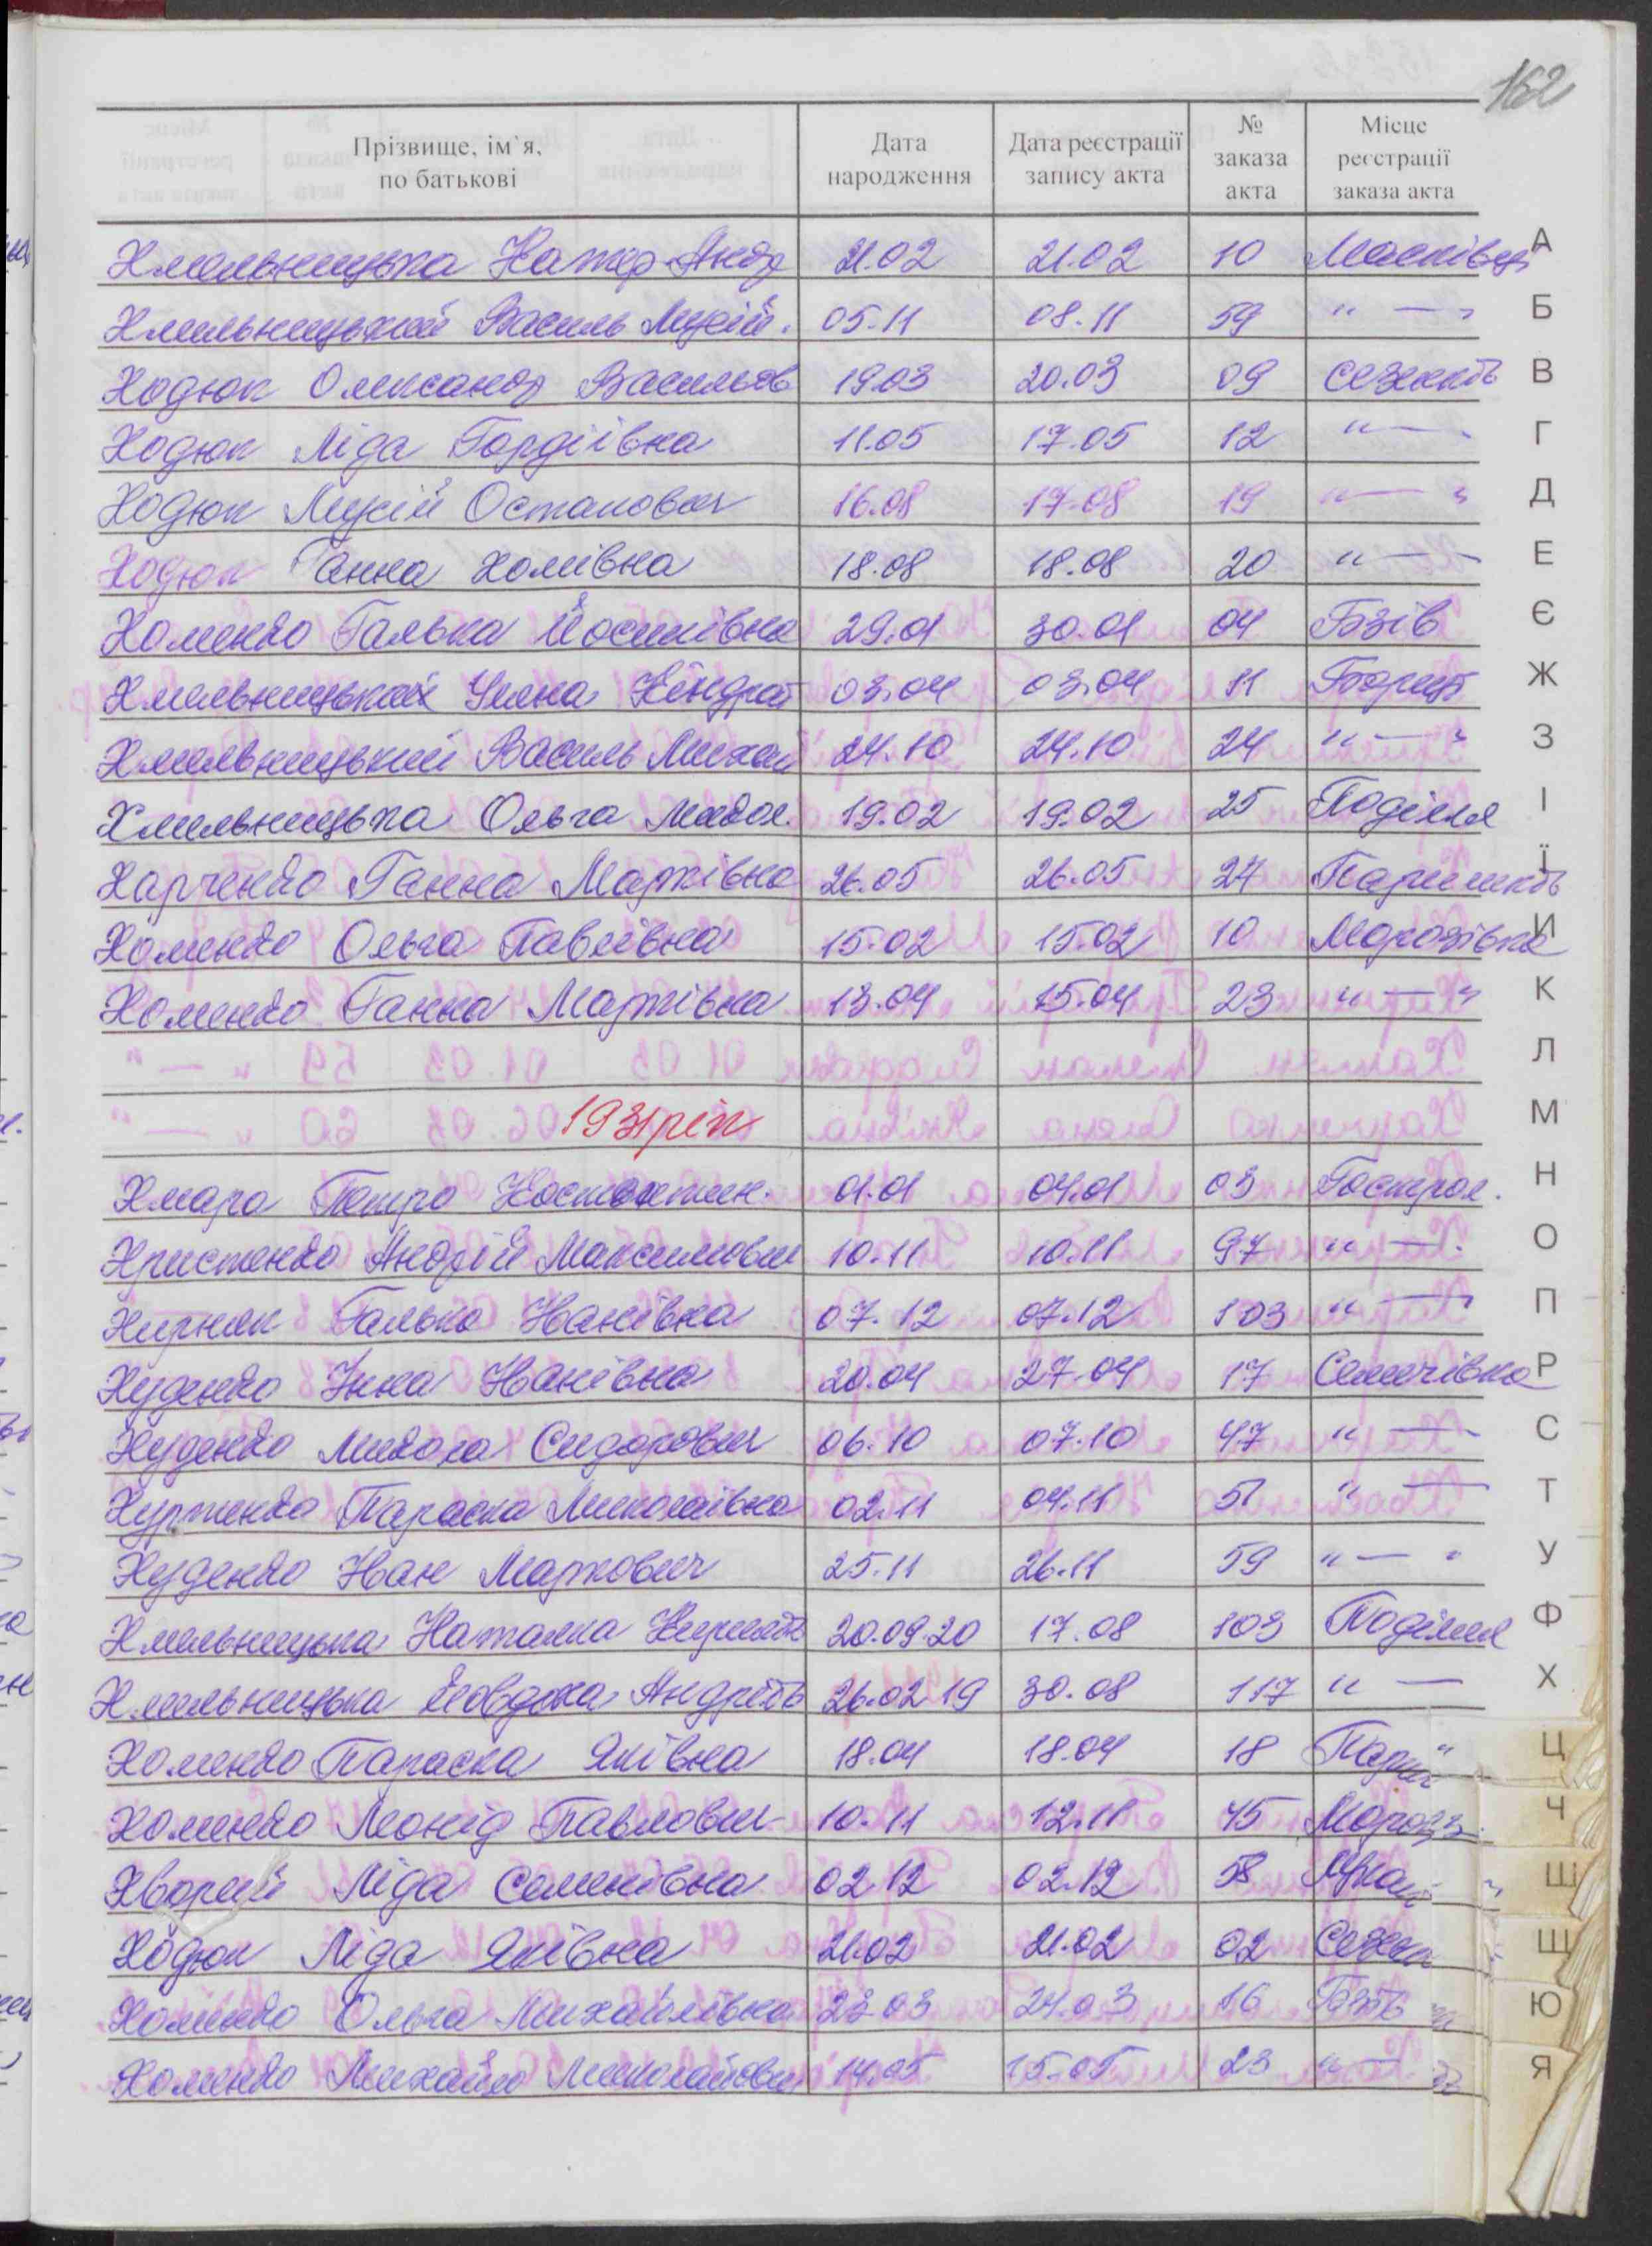 162
Прізвище, ім`я, по батькові Дата народження Дата реєстрації запису акта № заказа акта Місце реєстрації заказа акта
Хмельницька Катер Андр 21.02 21.02 10 Масківці А
Хмельницький Василь Мусій. 05.11 08.11 59 " — " Б
Ходюк Олександр Васильов 19.03 20.03 09 Сезенків В
Ходюк Ліда Гордіївна 11.05 17.05 12 " — " Г
Ходюк Мусій Остапович 16.08 17.08 19 " — " Д
Ходюк Ганна Хомівна 18.08 18.08 20 " — Е
Хоменко Галька Йосипівна 29.01 30.01 04 Бзів Є
Хмельницька Уляна Кіндрат 03.04 03.04 11 Борщів Ж
Хмельницький Василь Михай 24.10 24.10 24 " — " З
Хмельницька Ольга Микол. 19.02 19.02 25 Поділля І
Харченко Ганна Марківна 26.05 26.05 27 Паришків Ї
Хоменко Ольга Павлівна 15.02 15.02 10 Морозівка И
Хоменко Ганна Марківна 13.04 15.04 23 " — " К
Л
1931 рік М
Хмара Петро Костянтин. 01.01 04.01 03 Гострол. Н
Христенко Андрій Максимович 10.11 10.11 97 " — О
Хирняк Галька Іванівна 07.12 07.12 103 " — П
Худенко Інна Іванівна 20.04 27.04 17 Семенівка Р
Худенко Микола Сидорович 06.10 07.10 47 " — С
Хурженко Параска Миколаївна 02.11 04.11 51 " — Т
Худенко Іван Маркович 25.11 26.11 59 " — " У
Хмельницька Наталка Кирилів 20.09.20 17.08 103 Поділля Ф
Хмельницька Йовдоха Андріїв 26.02 19 30.08 117 " — Х
Хоменко Параска Яківна 18.04 18.04 18 Париш Ц
Хоменко Леонід Павлович 10.11 12.11 45 Мороз Ч
Хворий Ліда Семенівна 02.12 02.12 58 Ш
Ходюк Ліда Яківна 21.02 21.02 02 Сезен Щ
Хоменко Ольга Михайлівна 23.03 24.03 16 Бзів Ю
Хоменко Михайло Миколайович 14.05 15.05 23 " — Я